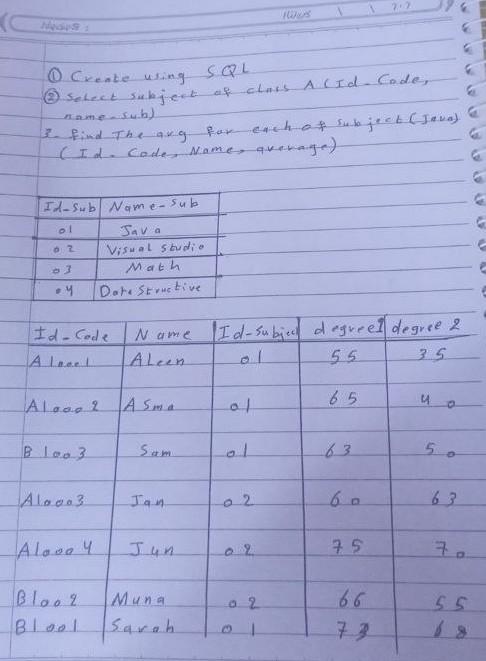 ① Create using SQL
② Select subject of class A (Id-Code,
name-sub)
3- find The avg for each of subject (Java)
(Id-Code, Name, average)
Id-Sub Name-Sub
01 Java
02 Visual Studio
03 Math
04 Data Structive
Id-Code Name Id-Subject degree1 degree 2
A10001 ALeen 01 55 35
A10002 ASma 01 65 40
B1003 Sam 01 63 50
A10003 Jan 02 60 63
A10004 Jun 02 75 70
B1002 Muna 02 66 55
B1001 Sarah 01 73 68